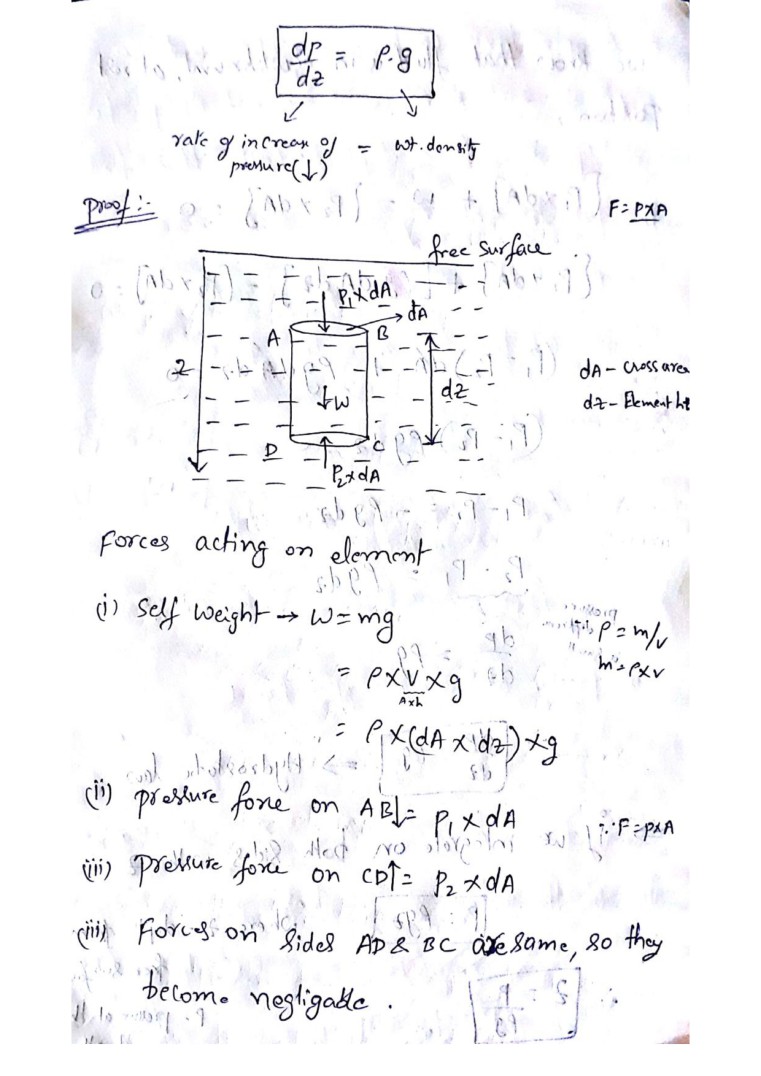 dp/dz = ρ.g
rate of increase of pressure(↓) = wt. density
Proof :-
F = P×A
free surface
P₁×dA
dA
A
B
Z
dz
↓W
dA - cross area
dz - Element
D
C
P₂×dA
Forces acting on element
(i) Self weight → W = mg
ρ = m/v
m = ρ×v
= ρ×V×g
A×h
= ρ×(dA × dz)×g
(ii) pressure force on AB↓ = P₁ × dA
∵ F = p×A
(iii) pressure force on CD↑ = P₂ × dA
(iii) Forces on sides AD & BC are same, so they
become negligable.